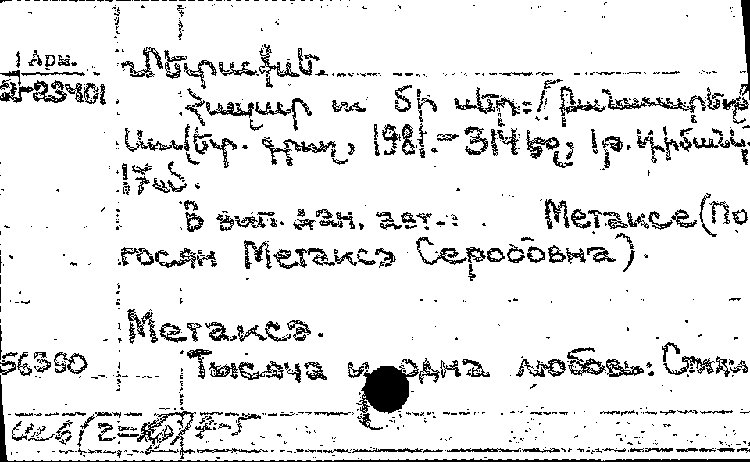 Арм.
2-23401
Մետաքսե.
Հազար ու մի սեր: [Բանաստեղծ
Սով. գրող, 1981.- 314 էջ, 1թ. դիմանկ.
17 սմ.
В вып. дан. авт.: Метаксе (По
госян Метаксэ Серобовна).
Метаксэ.
56380
Тысяча и одна любовь: Стихи